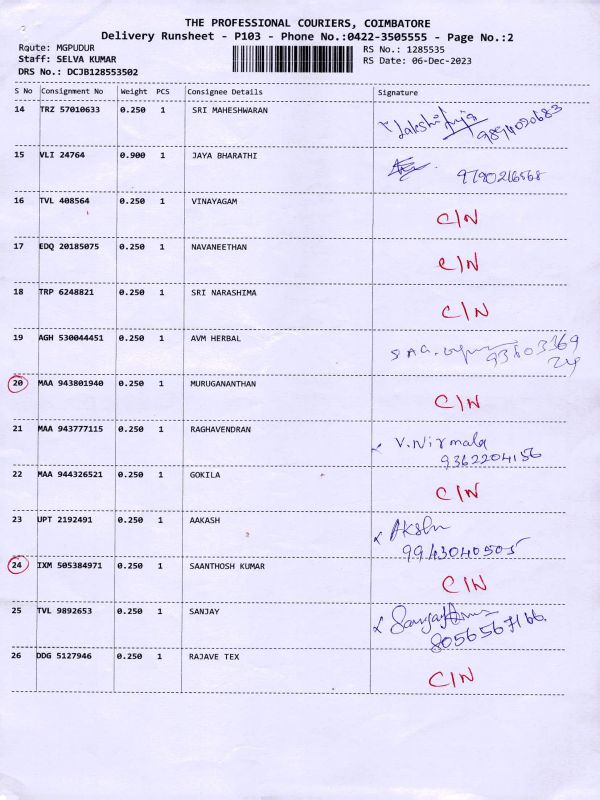 THE PROFESSIONAL COURIERS, COIMBATORE
Delivery Runsheet - P103 - Phone No.:0422-3505555 - Page No.:2
Route: MGPUDUR
RS No.: 1285535
Staff: SELVA KUMAR
RS Date: 06-Dec-2023
DRS No.: DCJB128553502
S No Consignment No Weight PCS Consignee Details Signature
14 TRZ 57010633 0.250 1 SRI MAHESHWARAN
9894020683
15 VLI 24764 0.900 1 JAYA BHARATHI
9790216568
16 TVL 408564 0.250 1 VINAYAGAM
C/N
17 EDQ 20185075 0.250 1 NAVANEETHAN
C/N
18 TRP 6248821 0.250 1 SRI NARASHIMA
C/N
19 AGH 530044451 0.250 1 AVM HERBAL
20 MAA 943801940 0.250 1 MURUGANANTHAN
C/N
21 MAA 943777115 0.250 1 RAGHAVENDRAN
V.Nirmala
9362204156
22 MAA 944326521 0.250 1 GOKILA
C/N
23 UPT 2192491 0.250 1 AAKASH
9943040505
24 IXM 505384971 0.250 1 SAANTHOSH KUMAR
C/N
25 TVL 9892653 0.250 1 SANJAY
8056567166.
26 DDG 5127946 0.250 1 RAJAVE TEX
C/N